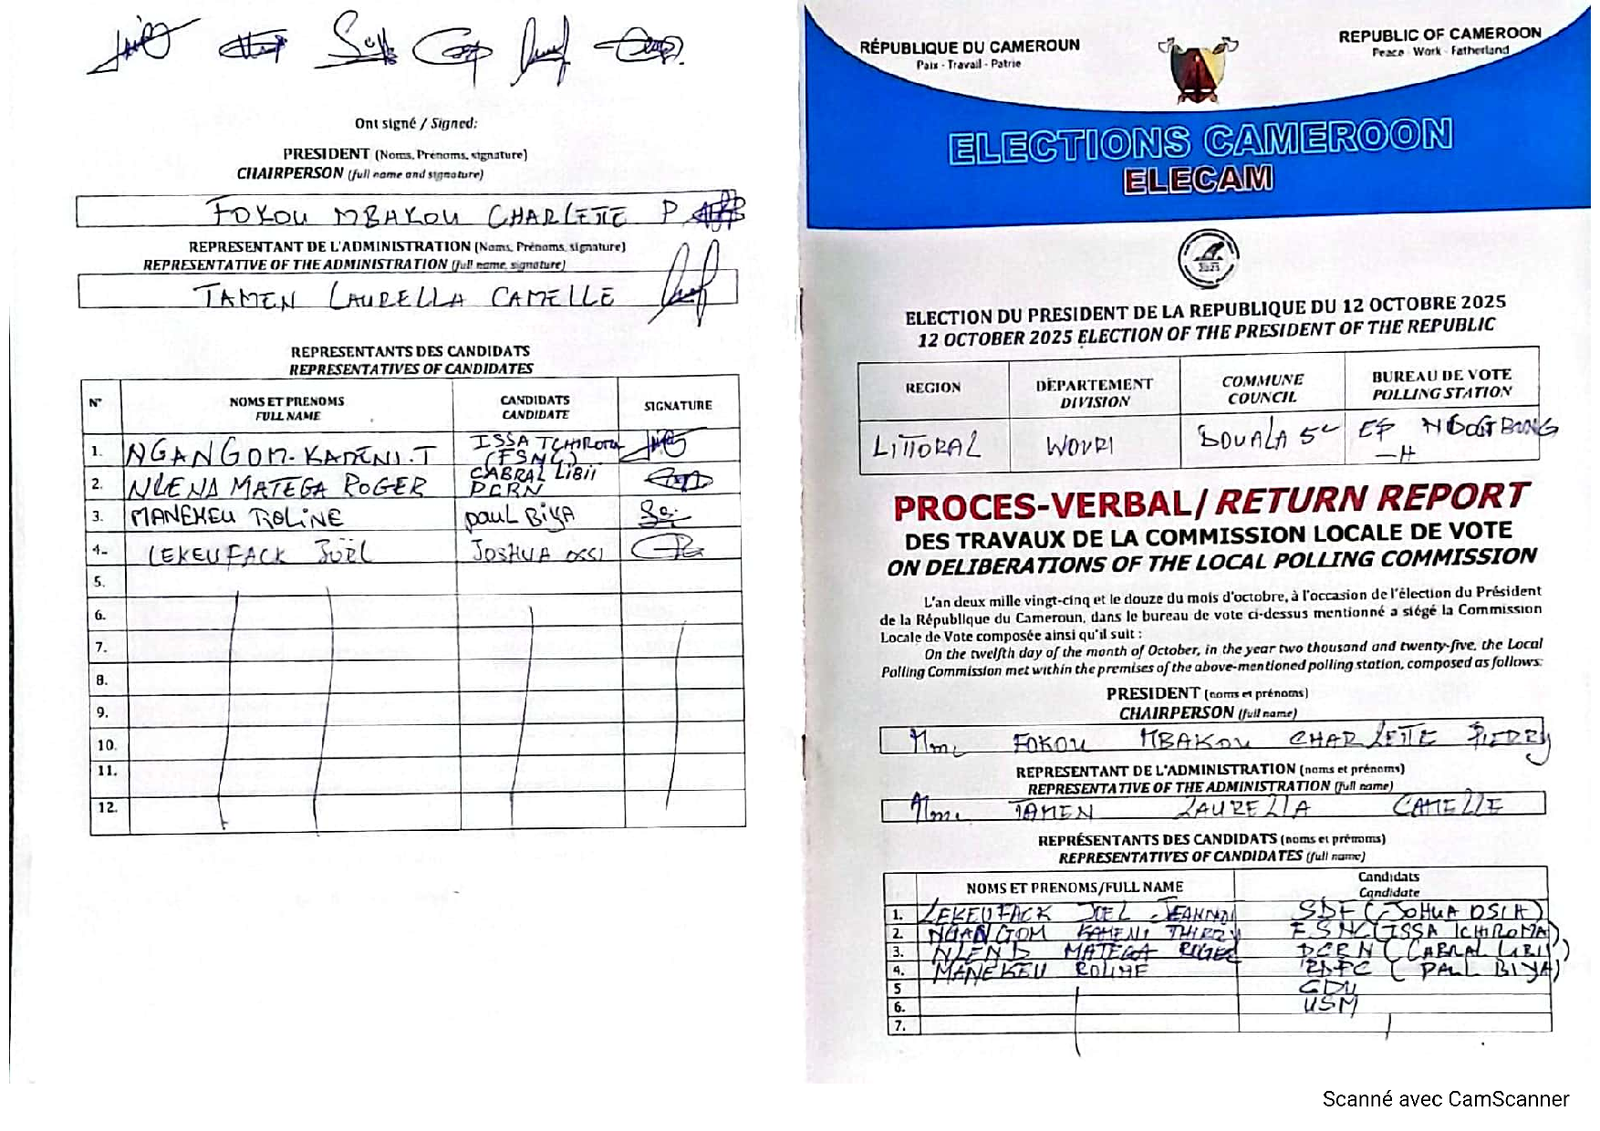 Ont signé / Signed:
PRESIDENT (Noms, Prénoms, signature)
CHAIRPERSON (full name and signature)
FOKOU MBAKOU CHARLETTE P
REPRESENTANT DE L'ADMINISTRATION (Noms, Prénoms, signature)
REPRESENTATIVE OF THE ADMINISTRATION (full name, signature)
TAMEN LAURELLA CAMELLE
REPRESENTANTS DES CANDIDATS
REPRESENTATIVES OF CANDIDATES
N° NOMS ET PRENOMS FULL NAME CANDIDATS CANDIDATE SIGNATURE
1. NGANGOM-KAMENI.T ISSA TCHIROMA (FSNC)
2. NLEND MATEGA ROGER CABRAL LIBII PCRN
3. MANEKEU ROLINE PAUL BIYA
4. LEKEUFACK JOËL JOSHUA OSSI
5.
6.
7.
8.
9.
10.
11.
12.
RÉPUBLIQUE DU CAMEROUN
Paix - Travail - Patrie
REPUBLIC OF CAMEROON
Peace - Work - Fatherland
ELECTIONS CAMEROON
ELECAM
ELECTION DU PRESIDENT DE LA REPUBLIQUE DU 12 OCTOBRE 2025
12 OCTOBER 2025 ELECTION OF THE PRESIDENT OF THE REPUBLIC
REGION DEPARTEMENT DIVISION COMMUNE COUNCIL BUREAU DE VOTE POLLING STATION
LITTORAL WOURI DOUALA 5e EP NDOGBONG -H
PROCES-VERBAL/ RETURN REPORT
DES TRAVAUX DE LA COMMISSION LOCALE DE VOTE
ON DELIBERATIONS OF THE LOCAL POLLING COMMISSION
L'an deux mille vingt-cinq et le douze du mois d'octobre, à l'occasion de l'élection du Président
de la République du Cameroun, dans le bureau de vote ci-dessus mentionné a siégé la Commission
Locale de Vote composée ainsi qu'il suit :
On the twelfth day of the month of October, in the year two thousand and twenty-five, the Local
Polling Commission met within the premises of the above-mentioned polling station, composed as follows:
PRESIDENT (noms et prénoms)
CHAIRPERSON (full name)
Mme FOKOU MBAKOU CHARLETTE PIERRY
REPRESENTANT DE L'ADMINISTRATION (noms et prénoms)
REPRESENTATIVE OF THE ADMINISTRATION (full name)
Mme TAMEN LAURELLA CAMELLE
REPRÉSENTANTS DES CANDIDATS (noms et prénoms)
REPRESENTATIVES OF CANDIDATES (full name)
NOMS ET PRENOMS/FULL NAME Candidats Candidate
1. LEKEUFACK JOEL SDF (JOHUA OSIH)
2. NGANGOM KAMENI THIRZY FSNC (ISSA TCHIROMA)
3. NLEND MATEGA ROGER PCRN (CABRAL LIBII)
4. MANEKEU ROLINE RDPC (PAUL BIYA)
5 GDU
6. USM
7.
Scanné avec CamScanner